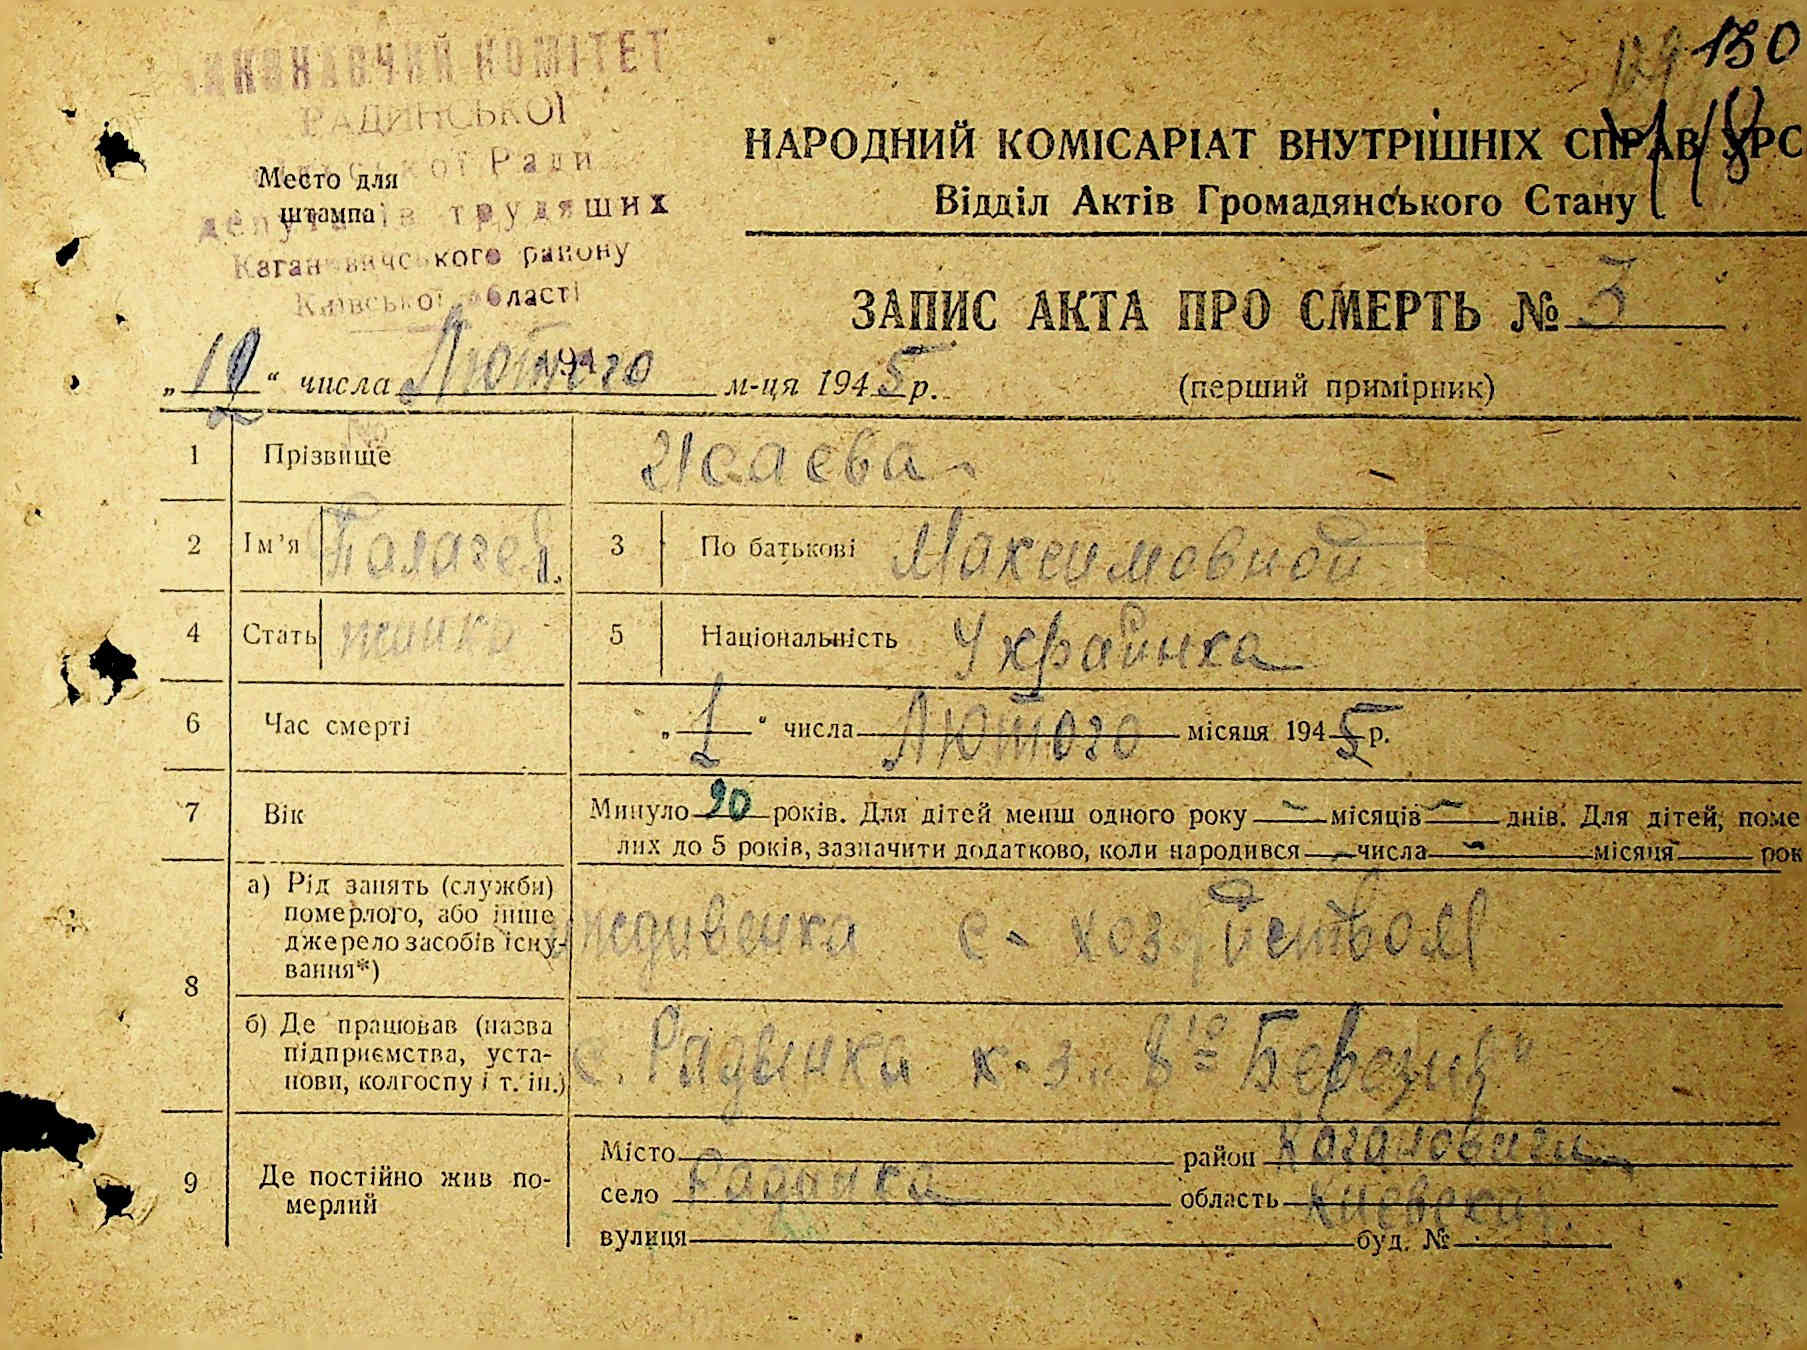 129 130
118
ВИКОНАВЧИЙ КОМІТЕТ
РАДИНСЬКОЇ
сільської Ради
депутатів трудящих
Кагановичського району
Київської області
Место для
штампа
НАРОДНИЙ КОМІСАРІАТ ВНУТРІШНІХ СПРАВ УРС
Відділ Актів Громадянського Стану
ЗАПИС АКТА ПРО СМЕРТЬ № 3
„ 12 “ числа Лютого м-ця 1945 р.
(перший примірник)
1 Прізвище Исаева
2 Ім’я Палагея 3 По батькові Максимовной
4 Стать жинка 5 Національність Украинка
6 Час смерті „ 1 “ числа Лютого місяця 1945 р.
7 Вік Минуло 90 років. Для дітей менш одного року — місяців — днів. Для дітей, поме
лих до 5 років, зазначити додатково, коли народився — числа — місяця рок
8 а) Рід занять (служби)
померлого, або інше
джерело засобів існу-
вання*)
иждивенка с- хозяйством
б) Де працював (назва
підприємства, уста-
нови, колгоспу і т. ін.)
с. Радинка к-з „8го Березня“
9 Де постійно жив по-
мерлий
Місто район Кагановичи
село Радинка область Киевская.
вулиця буд. №